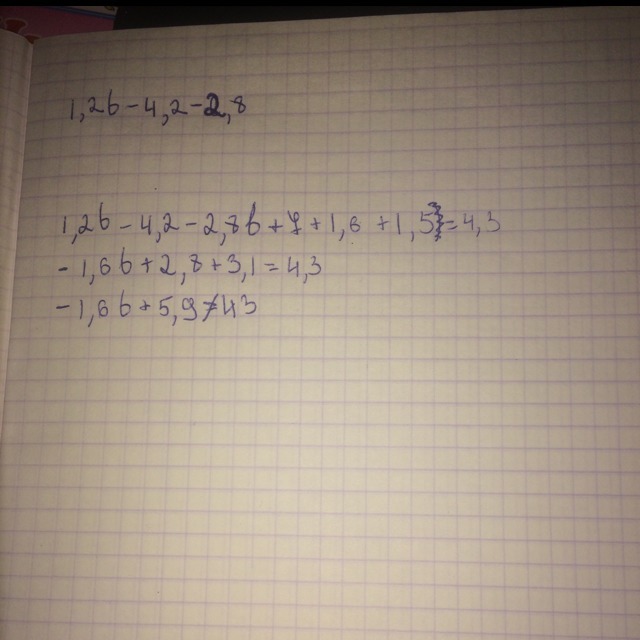 1,2b-4,2-2,8
1,2b-4,2-2,8b+7+1,6+1,5=4,3
-1,6b+2,8+3,1=4,3
-1,6b+5,9≠43